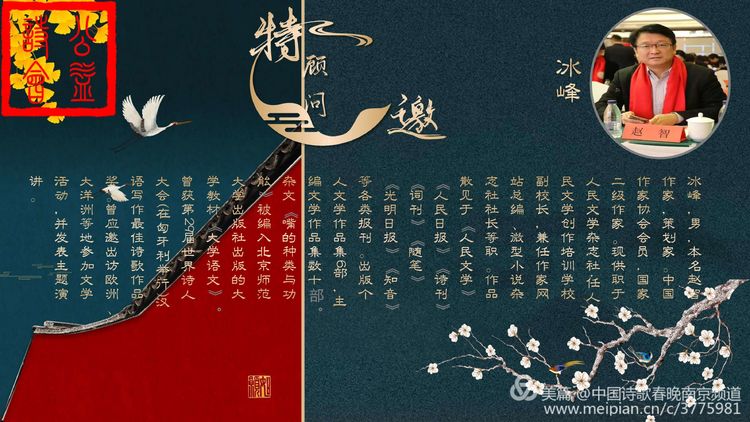 公益
詩會
特邀
顾问
冰峰
赵 智
冰峰，男，本名赵智，
作家，策划家，中国
作家协会会员，国家
二级作家。现供职于
人民文学杂志社任人
民文学创作培训学校
副校长，兼任作家网
站总编、微型小说杂
志社社长等职。作品
散见于《人民文学》
《人民日报》《诗刊》
《词刊》《随笔》
《光明日报》《知音》
等各类报刊。出版个
人文学作品集6部，主
编文学作品集数十部。
杂文《嘴的种类与功
能》被编入北京师范
大学出版社出版的大
学教材《大学语文》。
曾获第29届世界诗人
大会（在匈牙利举行）汉
语写作最佳诗歌作品
奖。曾应邀出访欧洲、
大洋洲等地参加文学
活动，并发表主题演
讲。
美篇 @中国诗歌春晚南京频道
www.meipian.cn/c/3775981